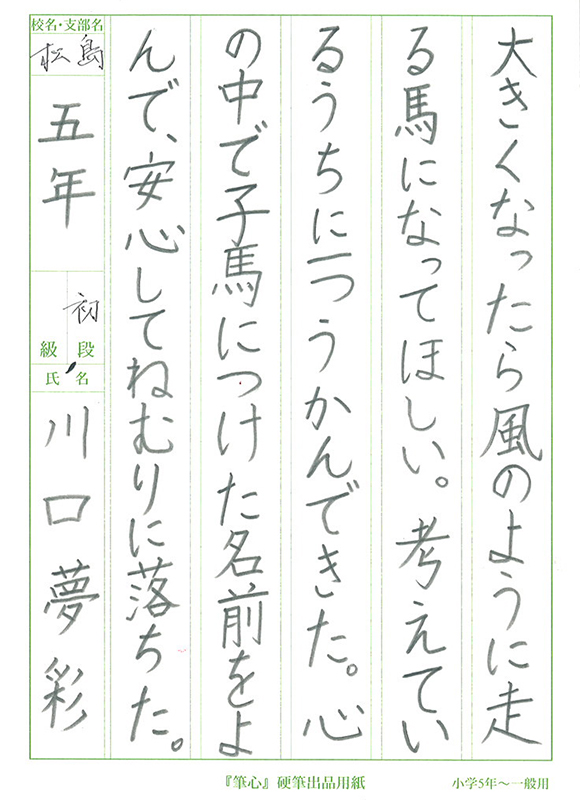 大きくなったら風のように走
る馬になってほしい。考えてい
るうちに一つうかんできた。心
の中で子馬につけた名前をよ
んで、安心してねむりに落ちた。
校名・支部名
松島
五年
初
級 段
氏 名
川口夢彩
『筆心』硬筆出品用紙
小学5年〜一般用